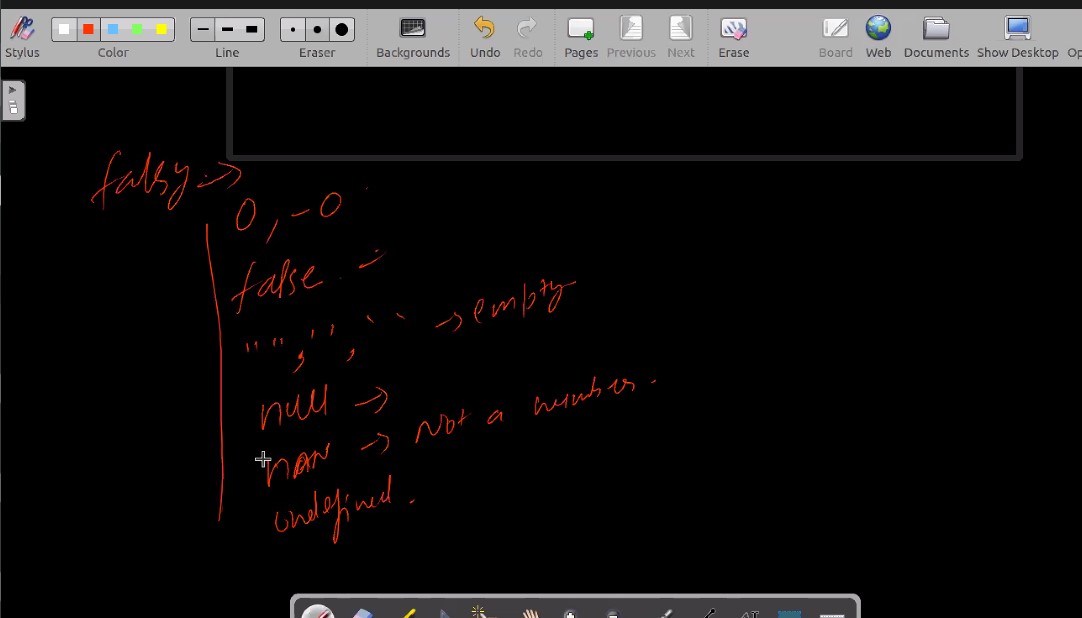 Stylus Color Line Eraser Backgrounds Undo Redo Pages Previous Next Erase Board Web Documents Show Desktop Op
falsy →
0, -0
false
"", '', `` → empty
null →
nan → Not a number.
undefined.